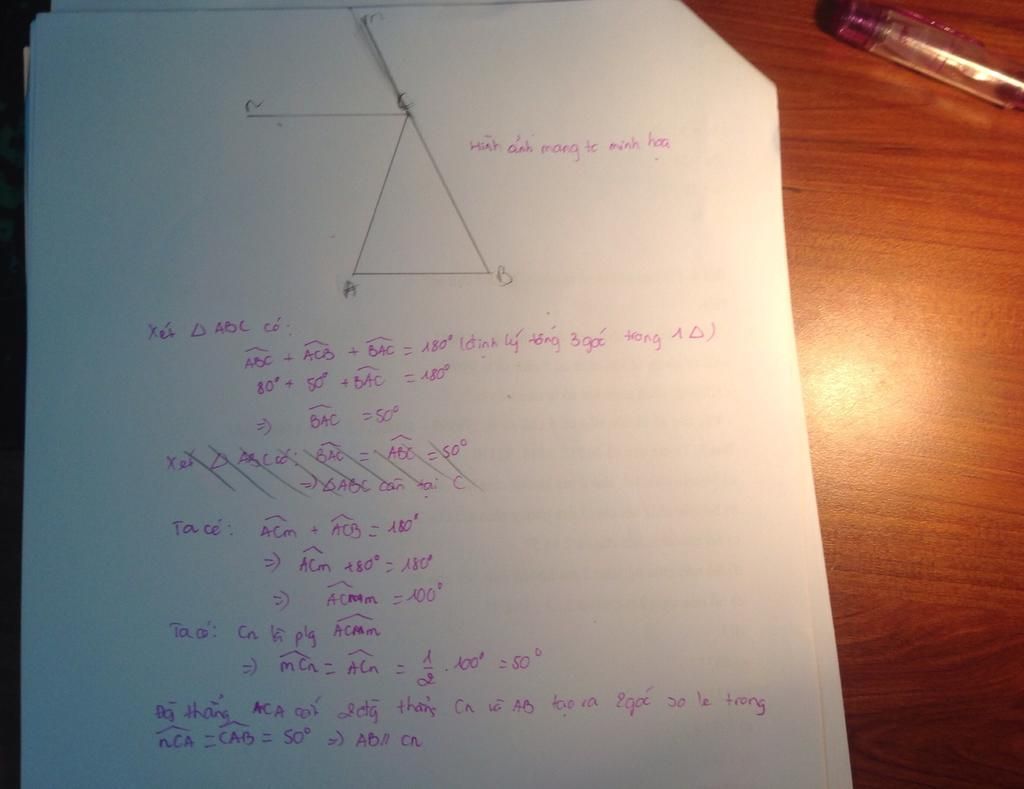 m
n
C
Hình ảnh mang tc minh họa
A
B
Xét △ ABC có:
\widehat{ABC} + \widehat{ACB} + \widehat{BAC} = 180° (định lý tổng 3 góc trong 1 △)
80° + 50° + \widehat{BAC} = 180°
=) \widehat{BAC} = 50°
Xét △ ABC có: \widehat{BAC} = \widehat{ABC} = 50°
=) △ABC cân tại C
Ta có: \widehat{ACm} + \widehat{ACB} = 180°
=) \widehat{ACm} + 80° = 180°
=) \widehat{ACm} = 100°
Ta có: Cn là plg \widehat{ACm}
=) \widehat{mCn} = \widehat{ACn} = \frac{1}{2} . 100° = 50°
thẳng CA cắt 2 thẳng Cn và AB tạo ra 2 góc so le trong
\widehat{nCA} = \widehat{CAB} = 50° =) AB // Cn